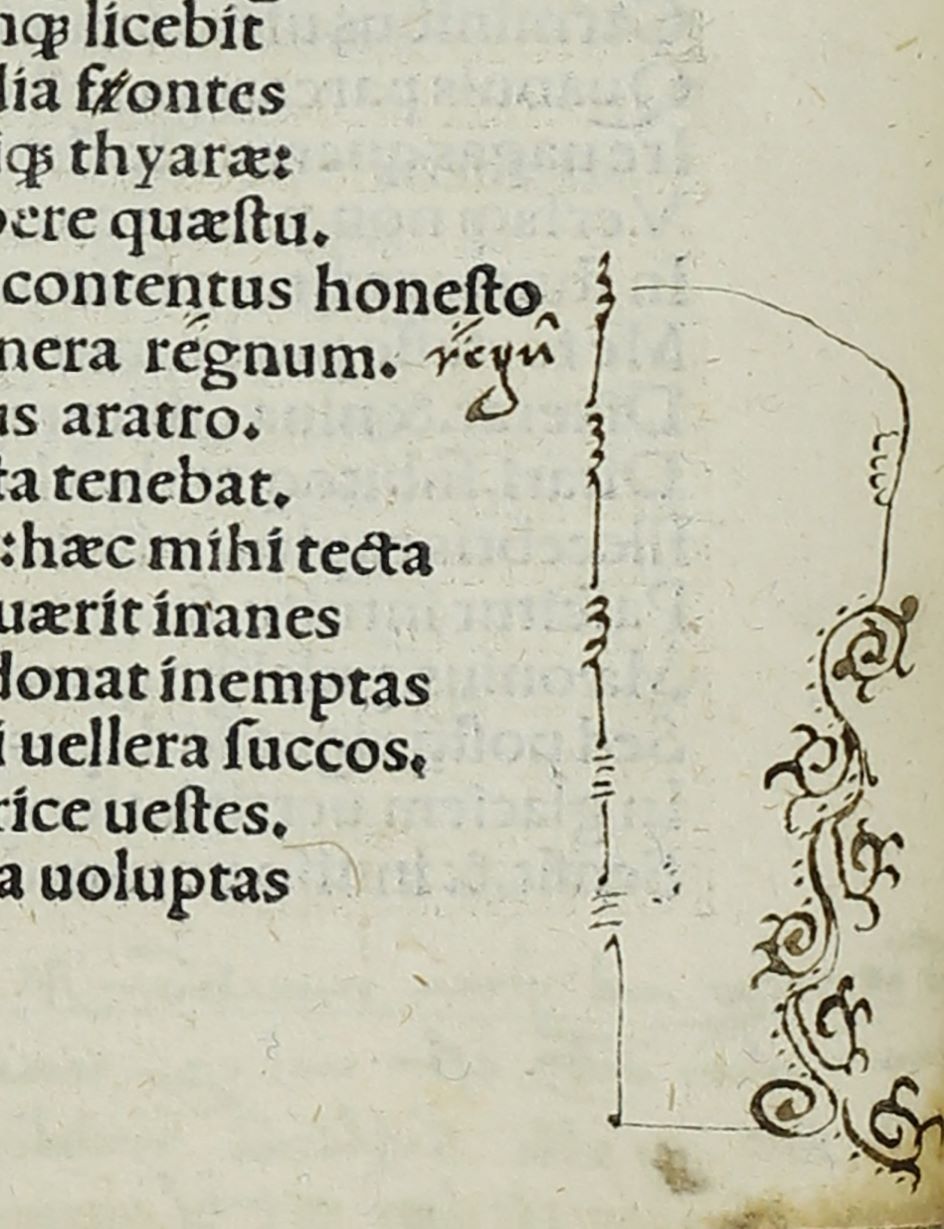 nqꝫ licebit
lia frontes
iqꝫ thyaræ:
pere quæſtu.
contentus honeſto
nera regnum. regn̂
us aratro.
ta tenebat.
:hæc mihi tecta
uærit inanes
donat inemptas
i uellera ſuccos.
rice ueſtes.
a uoluptas